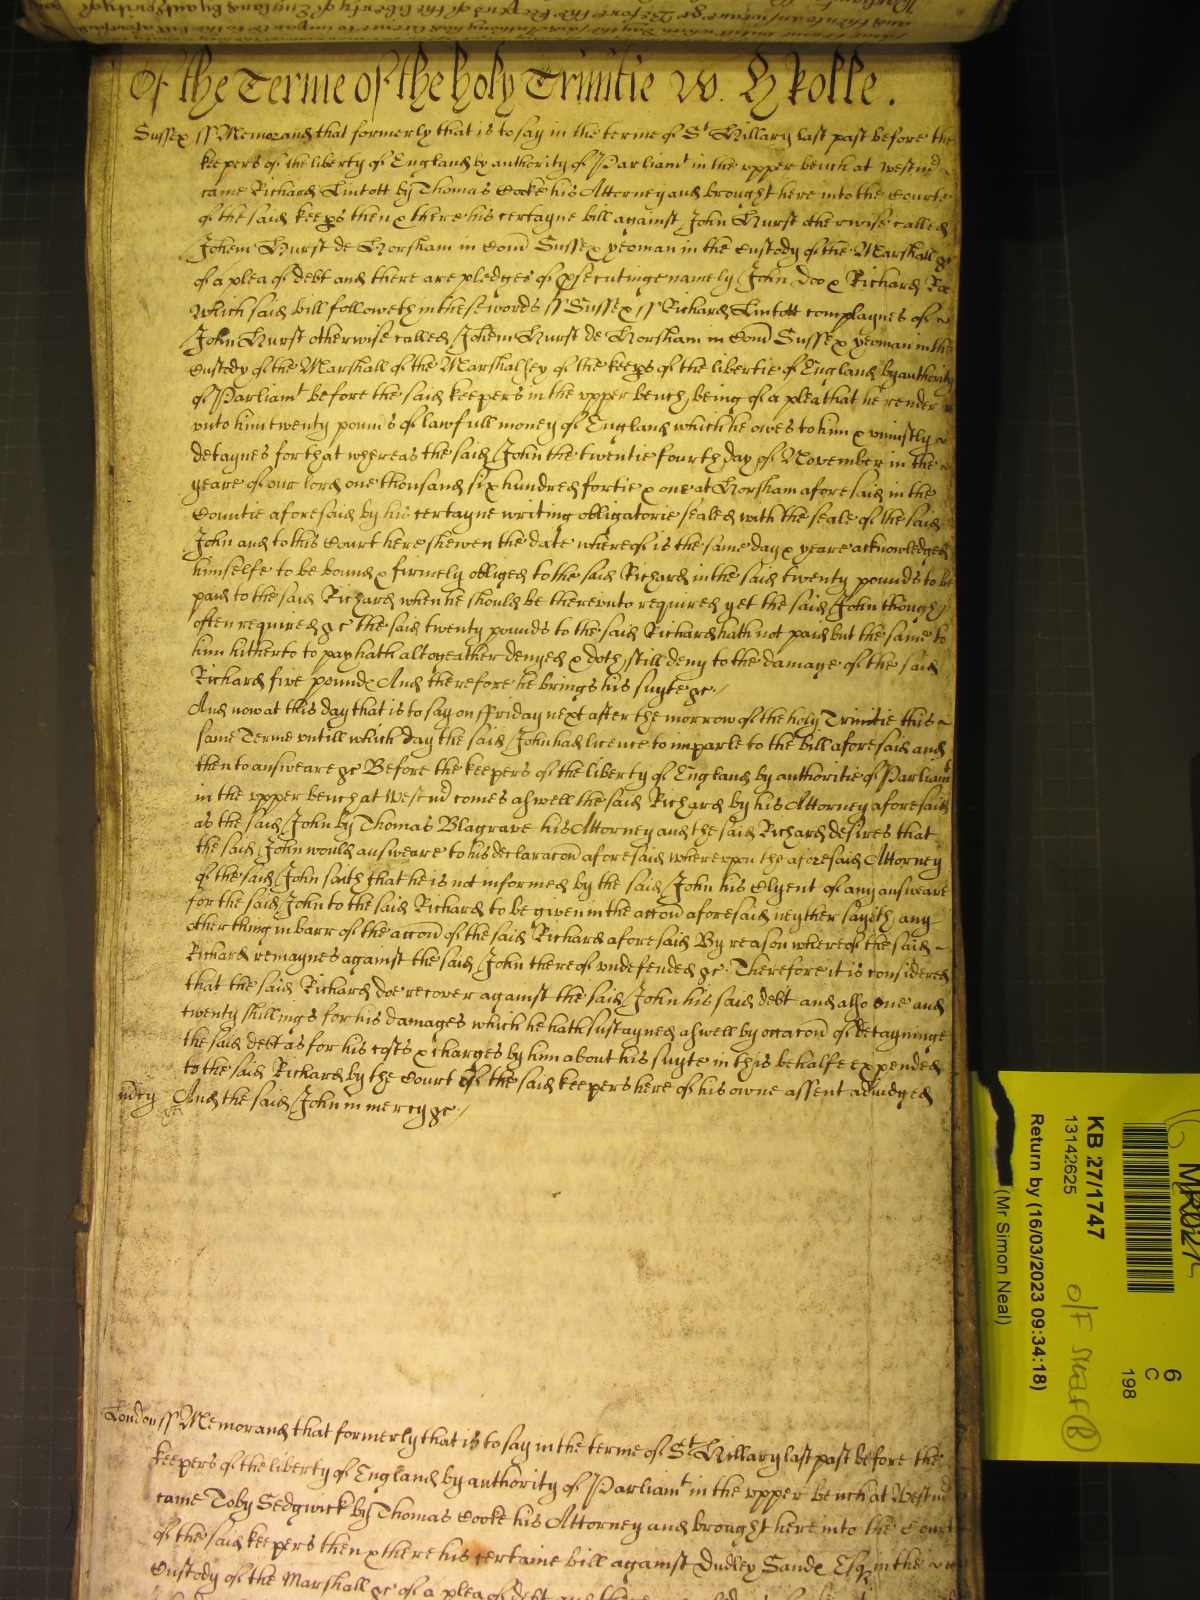 Of the Terme of the holy Trinitie w. H Rolle.
Sussex ss Memorand that formerly that is to say in the terme of St Hillary last past before the
keepers of the liberty of England by authority of Parliamt in the vpper bench at westm
came Richard Lintott by Thomas Cooke his Attorney and brought here into the Courte
of the said keeps then & there his certayne bill against John Hurst otherwise called
Johem Hurst de Horsham in Com Sussex yeoman in the custody of the Marshall &c
of a plea of debt and there are pledges of psecutinge namely John Doo & Richard Roe
which said bill followeth in these words ss Sussex ss Richard Lintott complaynes of
John Hurst otherwise called Johem Hurst de Horsham in Com Sussex yeoman in the
Custody of the Marshall of the Marshalsey of the keeps of the libertie of England by authority
of Parliamt before the said keepers in the vpper bench being of a plea that he render
vnto him twenty pounds of lawfull money of England which he owes to him & vniustly
detaynes for that whereas the said John the twentie fourth day of November in the
yeare of our lord one thousand six hundred fortie & one at Horsham aforesaid in the
Countie aforesaid by his certayne writing obligatorie sealed with the seale of the said
John and to this Court here shewen the date whereof is the same day & yeare acknowledged
himselfe to be bound & firmely obliged to the said Richard in the said twenty pounds to be
paid to the said Richard when he should be therevnto required yet the said John though
often required &c the said twenty pounds to the said Richard hath not paid but the same to
him hitherto to pay hath altogeather denyed & doth still deny to the damage of the said
Richard five pounds And therefore he brings his suyte &c /
And now at this day that is to say on ffriday next after the morrow of the holy Trinitie this
same Terme vntill which day the said John had licence to imparle to the bill aforesaid and
then to answeare &c Before the keepers of the liberty of England by authoritie of Parliamt
in the vpper bench at westm comes aswell the said Richard by his Attorney aforesaid
as the said John by Thomas Blagrave his Attorney and the said Richard desires that
the said John would answeare to his declaracon aforesaid wherevpon the aforesaid Attorney
of the said John saith that he is not informed by the said John his Clyent of any answeare
for the said John to the said Richard to be given in the accon aforesaid neyther sayeth any
other thing in barr of the accon of the said Richard aforesaid By reason whereof the said
Richard remaynes against the said John thereof vndefended &c Therefore it is considered
that the said Richard doe recover against the said John his said debt and also one and
twenty shillings for his damages which he hath sustayned aswell by occacon of detayninge
the said debt as for his costs & charges by him about his suyte in this behalfe expended
to the said Richard by the Court of the said keepers here of his owne assent adiudged
mcy And the said John in mercy &c /
London ss Memorand that formerly that is to say in the terme of St Hillary last past before the
keepers of the liberty of England by authority of Parliamt in the vpper bench at Westm
came Toby Sedgwick by Thomas Cooke his Attorney and brought here into the Court
of the said keepers then & there his certaine bill against Dudley Sands Esq in the
Custody of the Marshall &c of a plea of debt and there
KB 27/1747
13142625
Return by (16/03/2023 09:34:18)
(Mr Simon Neal)
6
C
198